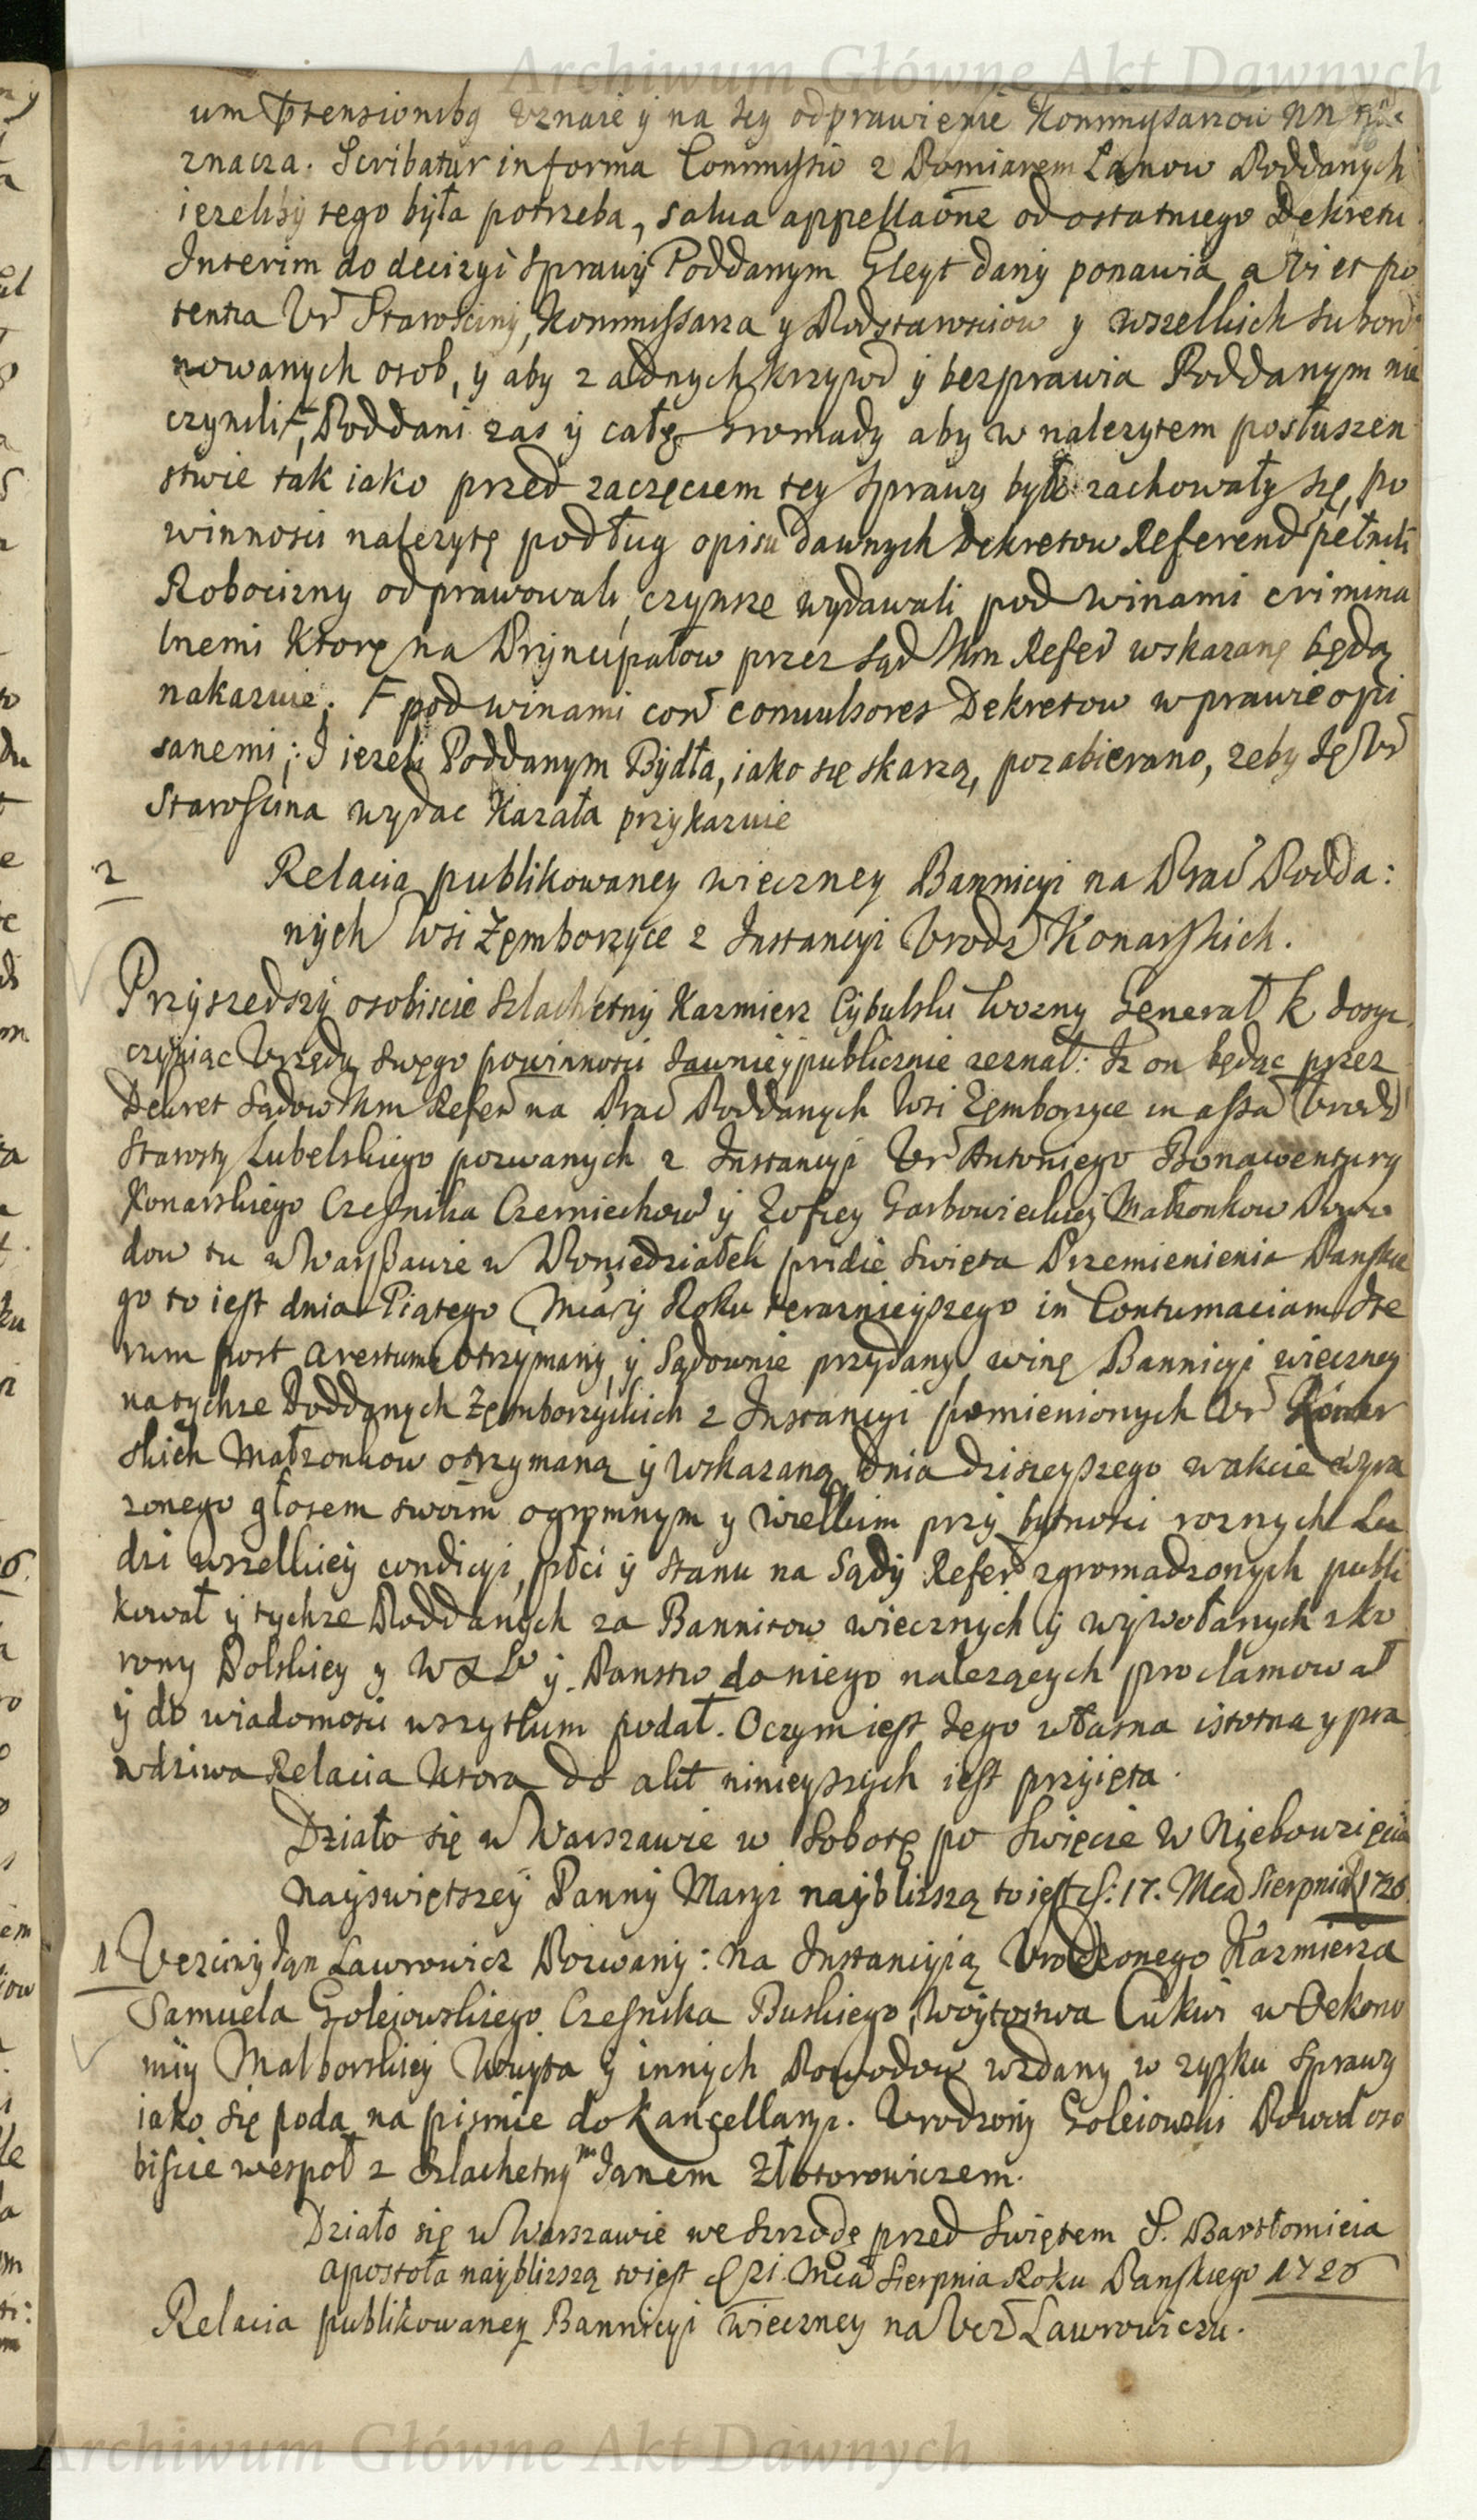 um praetensionibg uznaie y na tey odprawienie Kommyssarzow NN
znacza. Scribatur in forma Commissio z Pomiarem Łanow Poddanych
iezeliby tego była potrzeba, salua appellaone od ostatniego Dekretu
Interim do decizyi sprawy Poddanym Gleyt dany ponawia, a vi et po
tentia Ur Starosciny, Kommissarza y Podstarosciow y wszelkich subor
nowanych osob, y aby zadnych krzywd y bezprawia Poddanym nie
czynili F, Poddani zas y całe Gromady aby w nalezytem posłuszen
stwie tak iako przed zaczęciem tey sprawy było zachowały się, po
winnosci nalezytę podług opisu dawnych Dekretow Referend pełnili
Robocizny odprawowali, czynsze wydawali pod winami crimina
lnemi ktore na Pryncipałow przez sąd Nm Refer wskazanę będą
nakazuie. F pod winami con conuulsores Dekretow w prawie opi
sanemi; I iezeli Poddanym Bydła, iako się skarzą, pozabierano, zeby ię Ur
Staroscina wydac Kazała przykazuie
2 Relacia publikowaney wieczney Bannicyi na Prac Podda:
nych Wsi Zęmborzyce z Instancyi Urodz Konarskich.
Przyszedszy osobiscie szlachetny Kazmierz Cybulski Wozny Generał K dosyc
czyniąc Urzędu swego powinnosci Iawnie y publicznie zeznał: Iz on będąc przez
Dekret sądow Nm Refer na Prac Poddanych Wsi Zęmborzyce in assa Urodz
Starosty Lubelskiego pozwanych z Instancyi Ur Antoniego Bonawentury
Konarskiego Czesnika Czerniechow y Zofiey Garbowieckiey Małzonkow Powo
dow tu w Warszawie w Poniedziałek pridie Swięta Przemienienia Pansku
go to iest dnia Piątego Mca y Roku terazniejszego in Contumaciam Ite
rum post arestum otrzymany, y sądownie przydany winę Bannicyi wieczney
na tychze Poddanych Zęmborzyckich z Instancyi pomienionych Ur Konar
skich Małzonkow otrzymaną y wskazaną dnia dzisieyszego w akcie wyra
zonego głosem swoim ogromnym y wielkim przy bytnosci roznych Lu
dzi wszelkiey condicyi, płci y stanu na Sądy Refer zgromadzonych publi
kował y tychze Poddanych za Bannitow wiecznych y wywołanych z Ko
rony Polskiey y W X L y Panstw do niego nalezących proclamował
y do wiadomosci wszytkim podał. O czym iest Iego własna istotna y pra
wdziwa Relacia ktora do akt ninieyszych iest przyięta.
Działo się w Warszawie w Sobotę po Swięcie W Niebowzięcia
Nayswiętszey Panny Maryi nayblizszą to iest d: 17. Mca Sierpnia 1726.
1 Uczciwy Ian Lawrowicz Pozwany: na Instancyią Urodzonego Kazmierza
Samuela Golejowskiego Czesnika Buskiego, Woytostwa Cukwi w Oekono
miy Malborskiey Woyta y innych Powodow wzdany w zysku sprawy
iako się poda na pismie do Kancellaryi. Urodzony Golejowski Powod oso
biscie wespoł z Szlachetnym Ianem Złotorowiczem.
Działo się w Warszawie we Szrodę przed Swiętem S. Bartłomieia
Apostoła nayblizszą to iest d 21. Mca Sierpnia Roku Panskiego 1726
Relacia publikowaney Bannicyi Wieczney na Ucz Lawrowiczu.
Archiwum Główne Akt Dawnych
Archiwum Główne Akt Dawnych